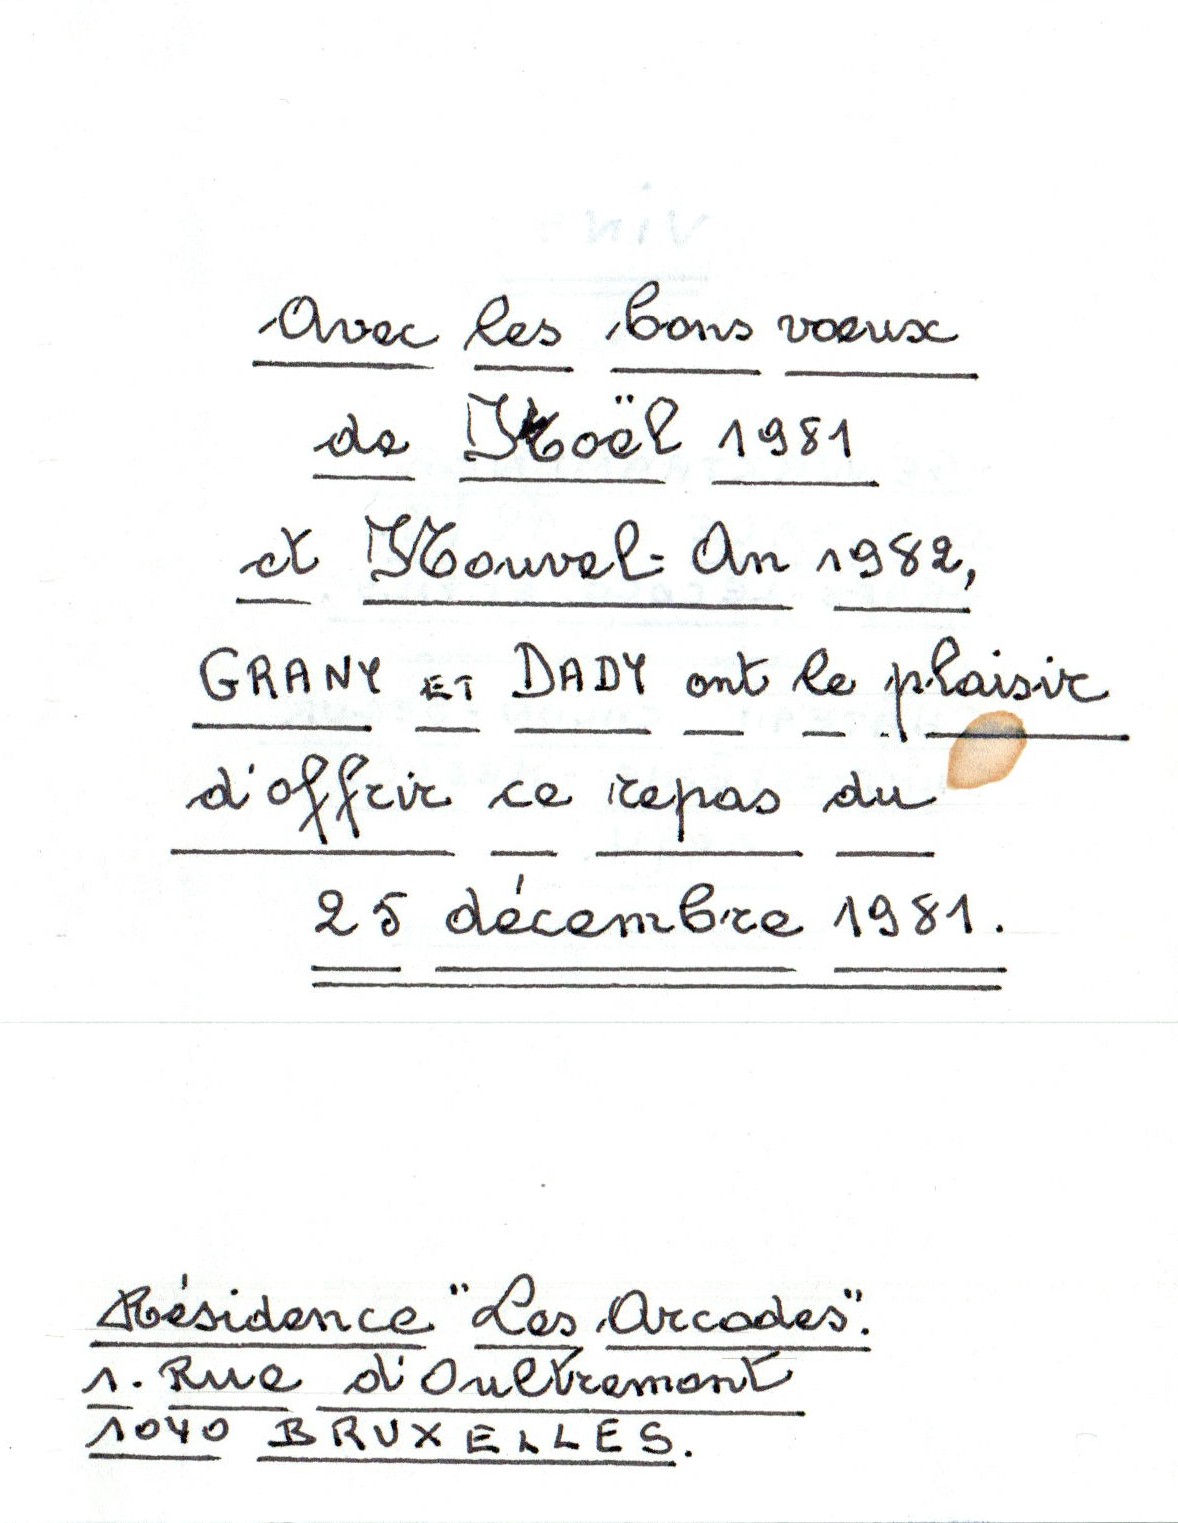 Avec les bons voeux
de Noël 1981
et Nouvel-An 1982,
GRANY ET DADY ont le plaisir
d'offrir ce repas du
25 décembre 1981.
Résidence "Les Arcades".
1. Rue d'Oultremont
1040 BRUXELLES.